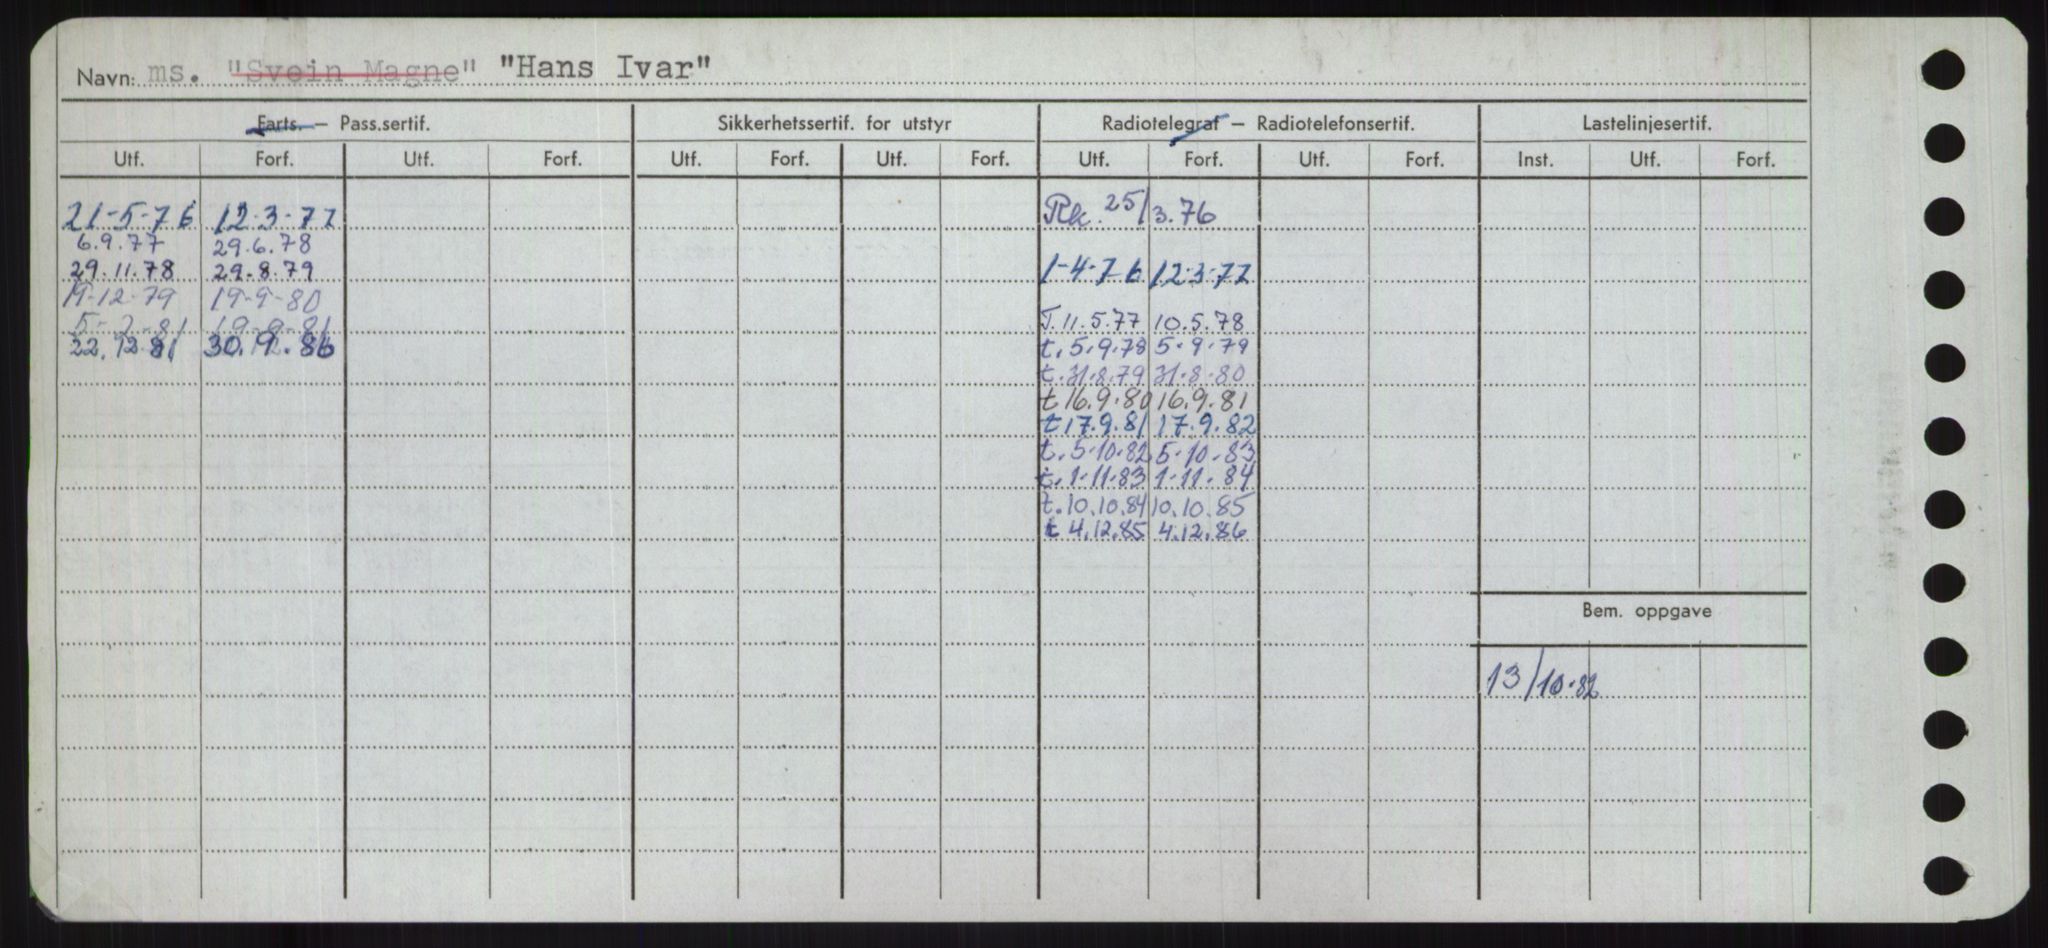 Navn: ms. "Svein Magne" "Hans Ivar"
Farts. — Pass.sertif. Sikkerhetssertif. for utstyr Radiotelegraf — Radiotelefonsertif. Lastelinjesertif.
Utf. Forf. Utf. Forf. Utf. Forf. Utf. Forf. Utf. Forf. Utf. Forf. Inst. Utf. Forf.
21-5-76 12-3-77 Rk. 25/3.76
6.9.77 29.6.78
29.11.78 29.8.79 1-4-76 12-3-77
19-12-79 19-9-80
5-2-81 19-9-81 T. 11.5.77 10.5.78
22.12.81 t. 5.9.78 5.9.79
t. 31.8.79 31.8.80
t 16.9.80 16.9.81
t 17.9.81 17.9.82
t. 5.10.82 5.10.83
t. 1.11.83 1.11.84
t. 10.10.84 10.10.85
t 4.12.85 4.12.86
Bem. oppgave
13/10.82